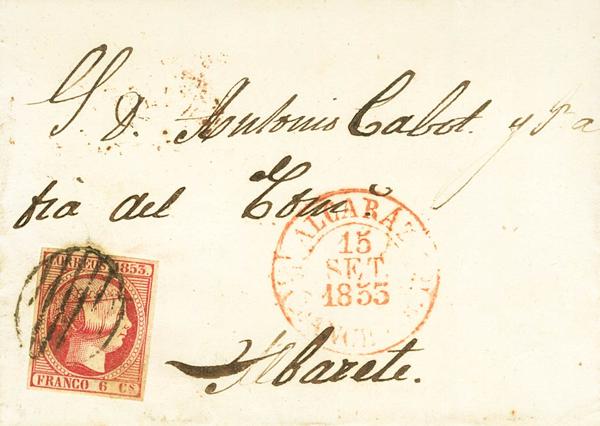 S. D. Antonio Cabot. y
del Comᵒ.
ALCARAZ
15
SET
1853
CORREOS 1853.
FRANCO 6 CS
Albacete.